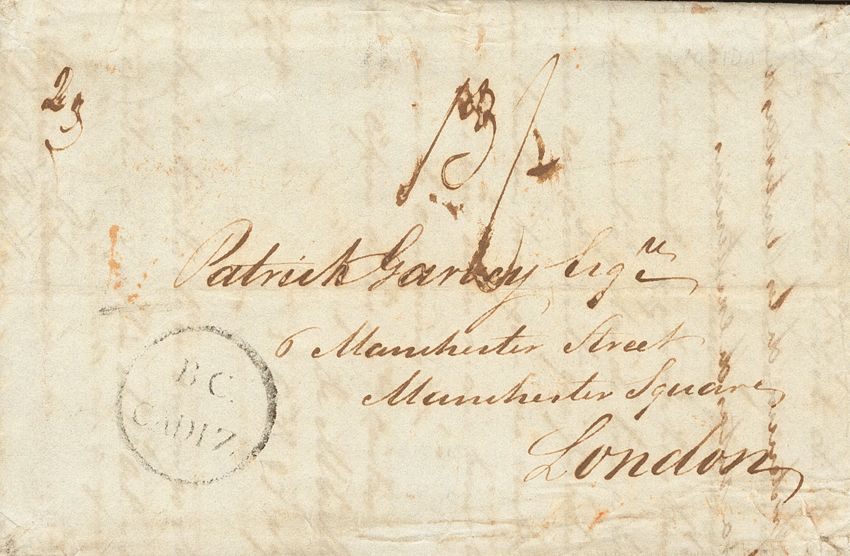 29
13/
Patrick Garvey Esqre
6 Manchester Street
Manchester Square
London
B.C.
CADIZ.